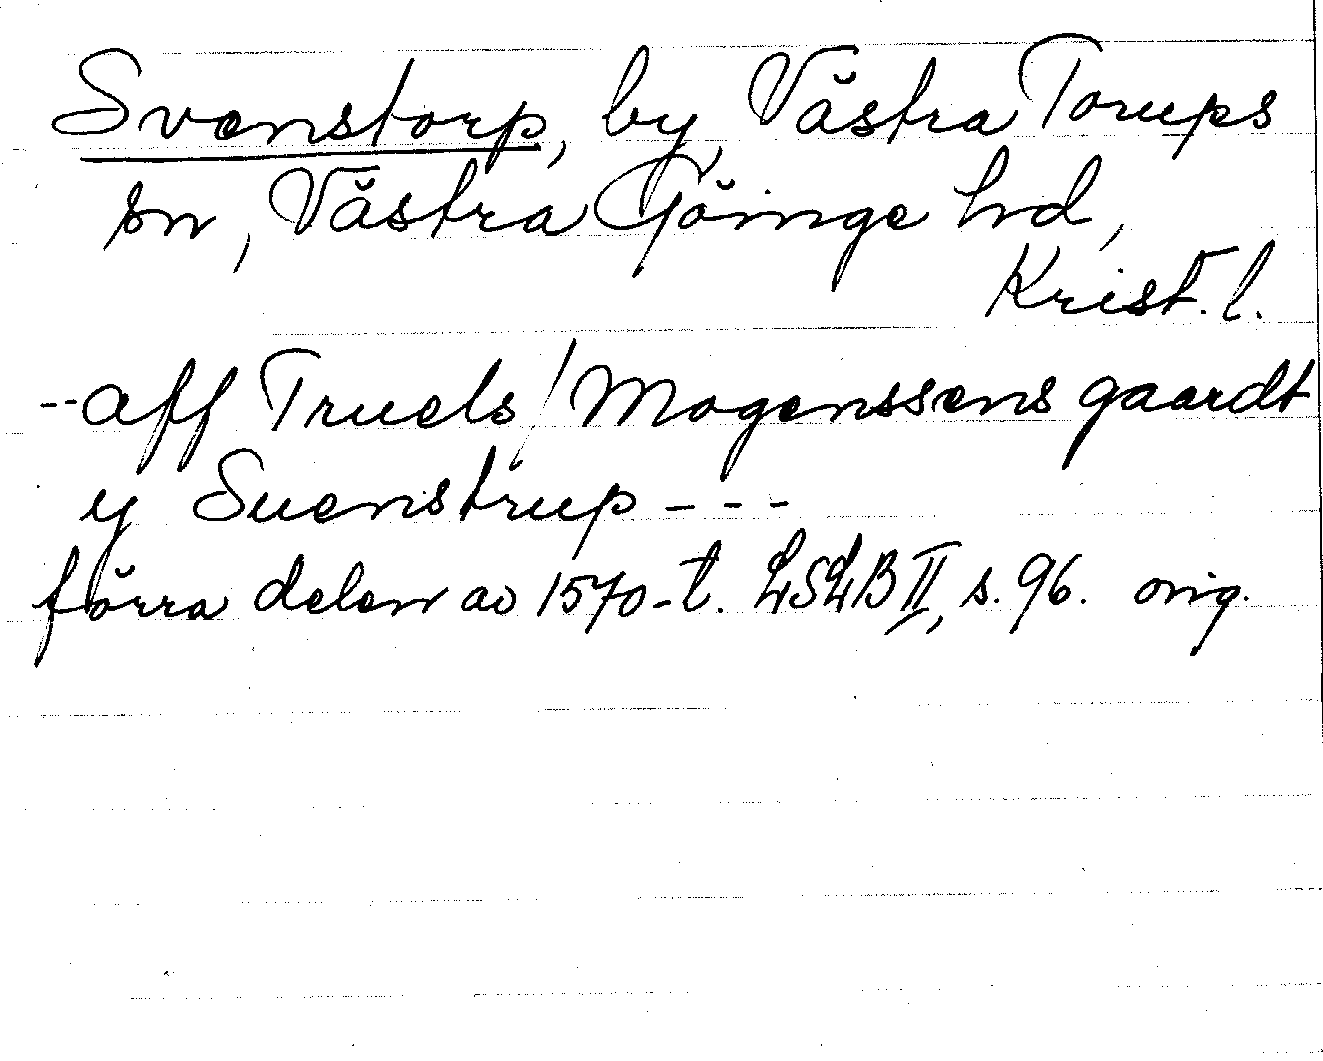 Svenstorp, by, Västra Torups
sn, Västra Göinge hd,
Krist. l.
--aff Truels / Mogenssens gaardt
y Suenstrup - - -
förra delen av 1570-t. LSLB II, s. 96. orig.